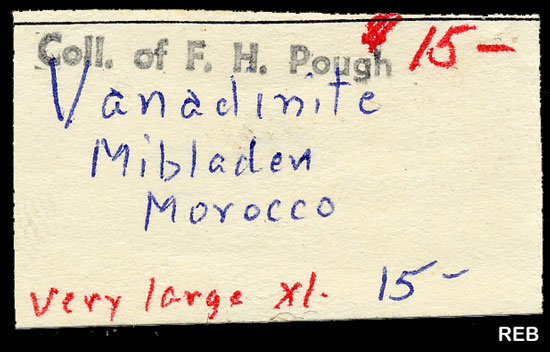 Coll. of F. H. Pough
$15-
Vanadinite
Mibladen
Morocco
very large xl. 15-
REB